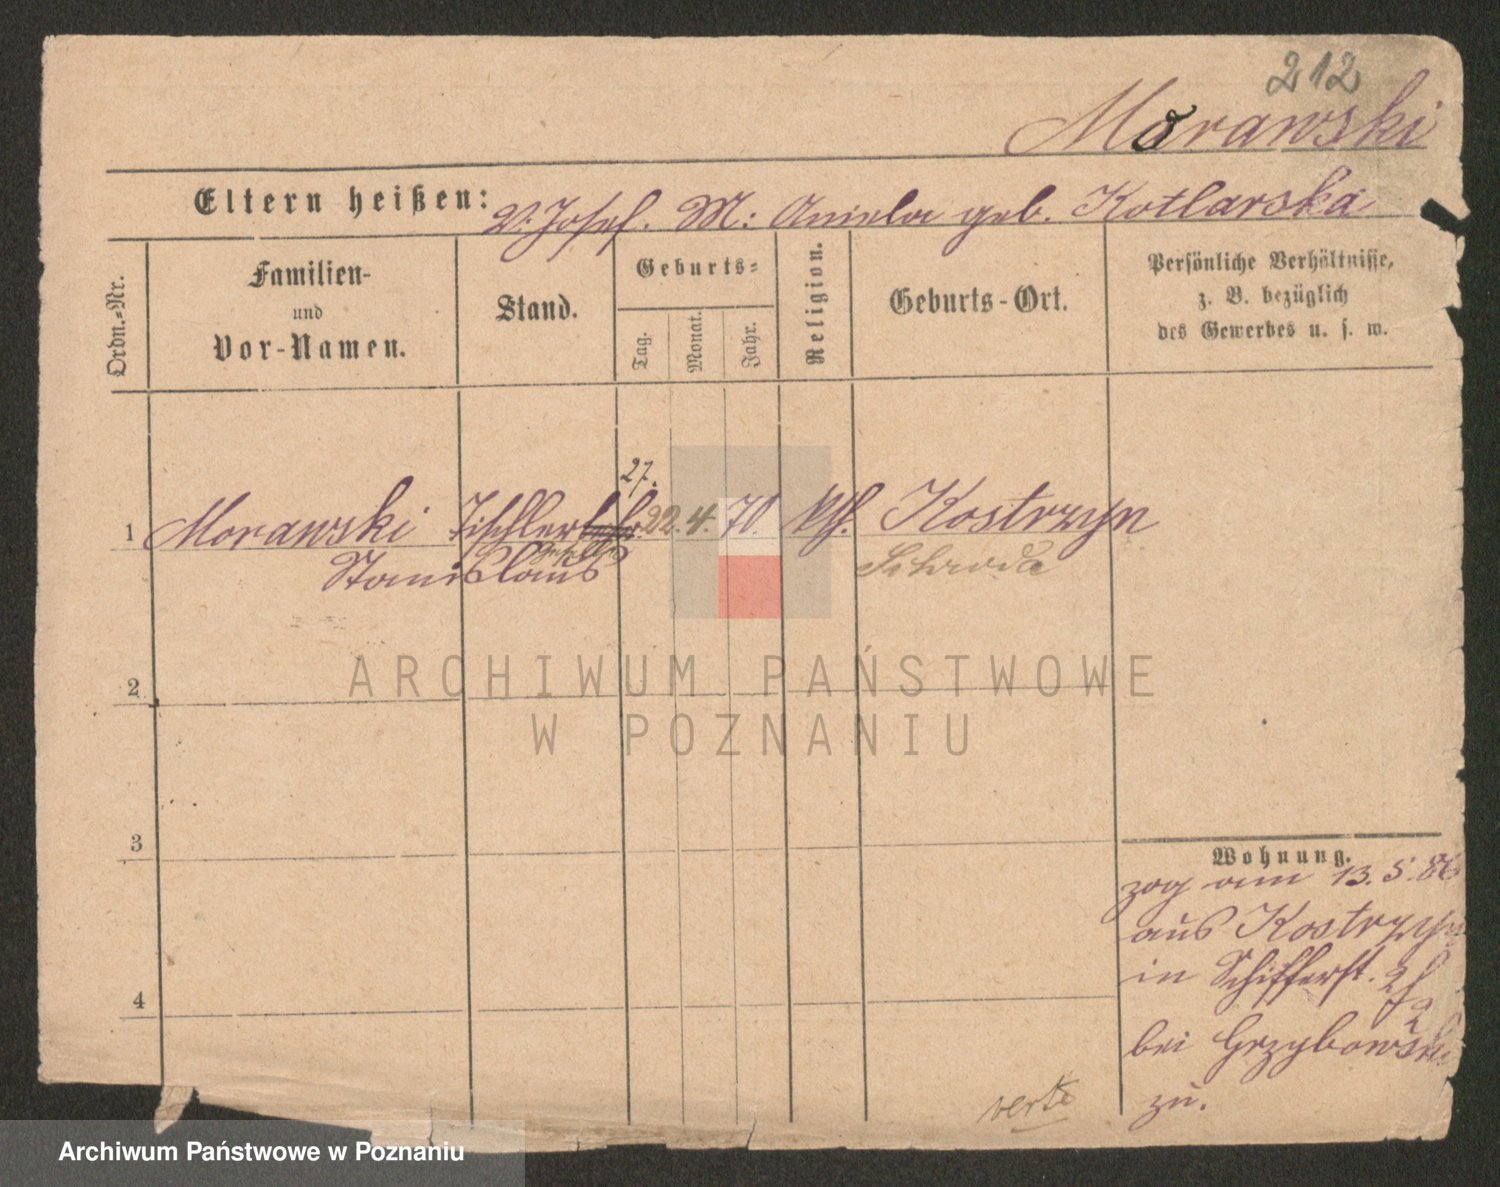 212
Morawski
Eltern heißen: V: Josef. M: Aniela geb. Kotlarska
Ordn.-Nr.
Familien-
und
Vor-Namen.
Stand.
Geburts-
Tag.
Monat.
Jahr.
Religion.
Geburts-Ort.
Persönliche Verhältnisse,
z. B. bezüglich
des Gewerbes u. s. w.
27.
1 Morawski Tischler 22. 4. 70. kth. Kostrzyn
Stanislaus Schroda
ARCHIWUM PAŃSTWOWE
W POZNANIU
2
3
4
Wohnung.
zog am 13. 5. 86
aus Kostrzyn
in Schifferst.
bei Grzybowski
zu.
verte
Archiwum Państwowe w Poznaniu